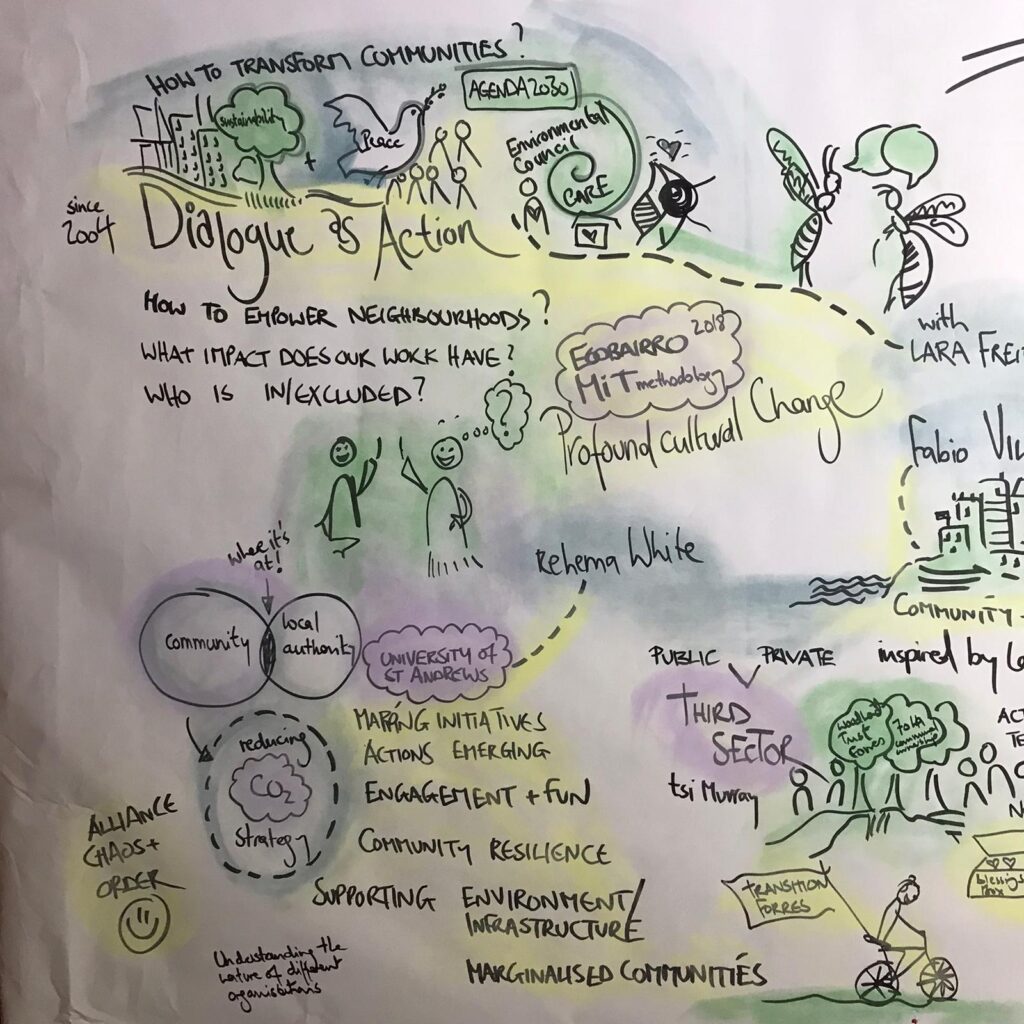 HOW TO TRANSFORM COMMUNITIES?
Sustainability
+
Peace
AGENDA 2030
Environmental
Council
CARE
since
2004
Dialogue as Action
HOW TO EMPOWER NEIGHBOURHOODS?
WHAT IMPACT DOES OUR WORK HAVE?
WHO IS IN/EXCLUDED?
?
ECOBAIRRO 2018
MiT methodology
Profound cultural Change
with
LARA FREIT
Fabio VIL
Rehema White
where it's
at!
community
local
authority
UNIVERSITY OF
ST ANDREWS
COMMUNITY
PUBLIC PRIVATE
inspired by
THIRD
SECTOR
tsi Murray
Woodland
Trust
Forres
community
ownership
MAPPING INITIATIVES
ACTIONS EMERGING
ENGAGEMENT + FUN
COMMUNITY RESILIENCE
SUPPORTING ENVIRONMENT/
INFRASTRUCTURE
MARGINALISED COMMUNITIES
reducing
CO2
strategy
ALLIANCE
CHAOS +
ORDER
Understanding the
nature of different
organisations
TRANSITION
FORRES
blessings
box